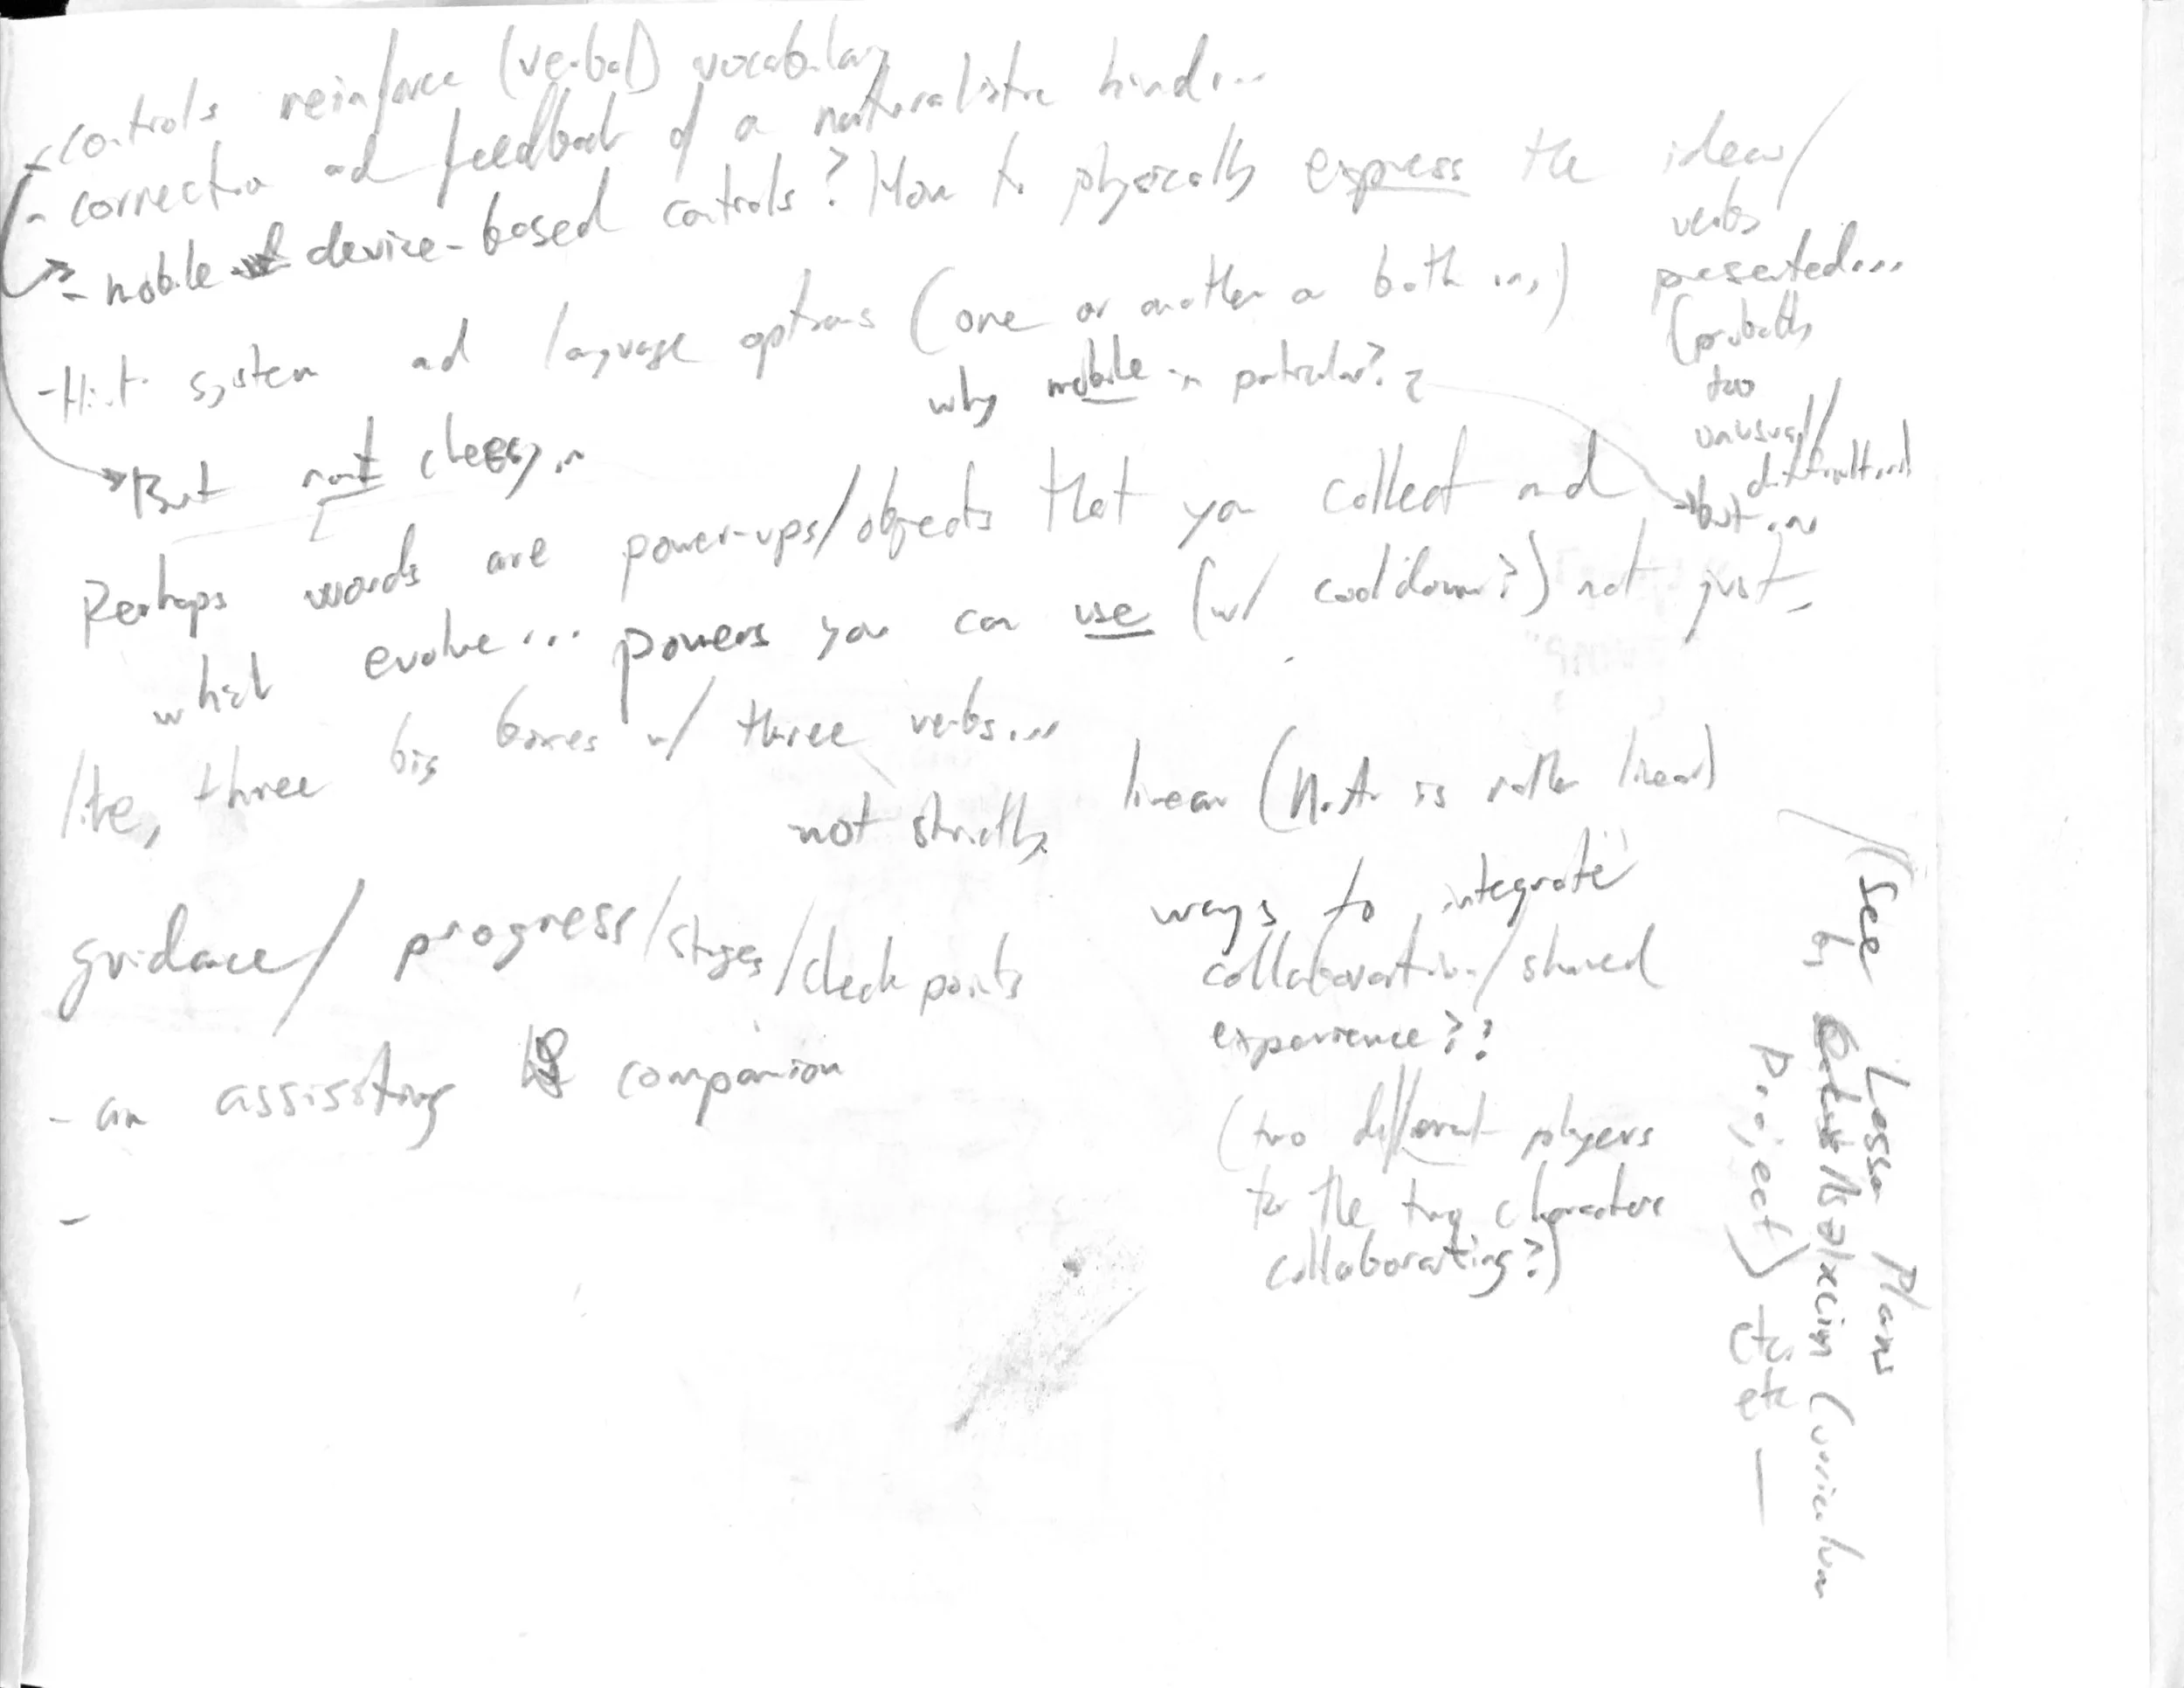 - controls reinforce (verbal) vocabulary
- correction and feedback of a naturalistic kind...
- mobile device-based controls? How to physically express the ideas/
verbs
presented...
(probably
too
unusual/
difficult...)
but...
- Hint system and language options (one or another or both...)
why mobile in particular?
But not cheesy...
Perhaps words are power-ups/objects that you collect and
what evolve... powers you can use (w/ cooldown?) not just
like, three big boxes w/ three verbs...
not strictly linear (N.A. is rather linear)
guidance/progress/stages/check points
- an assissting companion
-
ways to integrate
collaboration/shared
experience??
(two different players
for the two characters
collaborating?)
(see Lesson Plans
by Curriculum
Project) etc.
etc